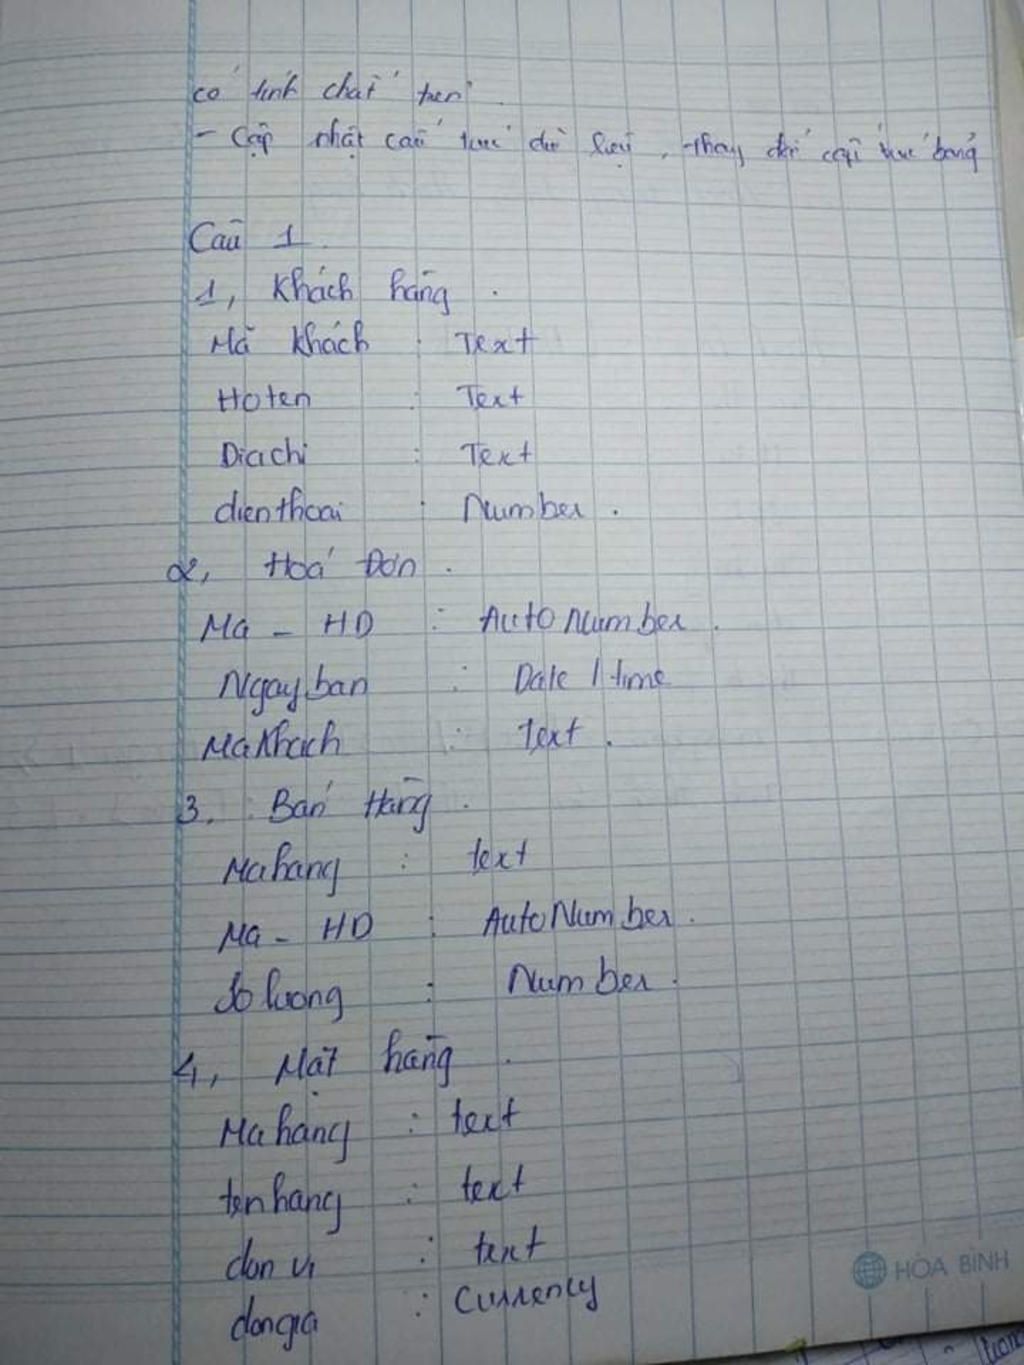 có tính chất trên
- Cập nhật cấu trúc dữ liệu, thay đổi cấu trúc bảng
Câu 1
1, Khách hàng
Mã khách : Text
Hoten : Text
Diachi : Text
dienthoai : Number.
2, Hoá Đơn.
Ma - HD : AutoNumber.
Ngayban : Date / time
MaKhach : text.
3. Bán Hàng.
Mahang : text
Ma - HD : AutoNumber.
So luong : Number.
4, Mặt hàng
Mahang : text
tenhang : text
don vi : text
dongia : Currency
HÒA BÌNH